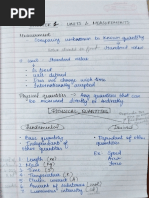 UNITS & MEASUREMENTS
Measurement
Comparing unknown to known quantity
standard value
* unit - standard value
* Well defined
* Does not change with time
* Internationally accepted
Physical quantities - Any quantities that can
be measured directly or indirectly
PHYSICAL QUANTITIES
Fundamental
Derived
* Basic quantity
(Independent of
other quantities)
* Dependent of other
quantities
Ex Speed
Area
Force
Ex Length (m)
* Mass (kg)
* Time (s)
* Temperature (K)
* Amount of substance (mol)
* Luminous intensity